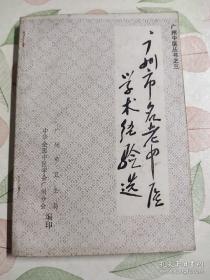 广州中医丛书之三
广州市名老中医
学术经验选
广州市卫生局
中华全国中医学会广州分会 编印